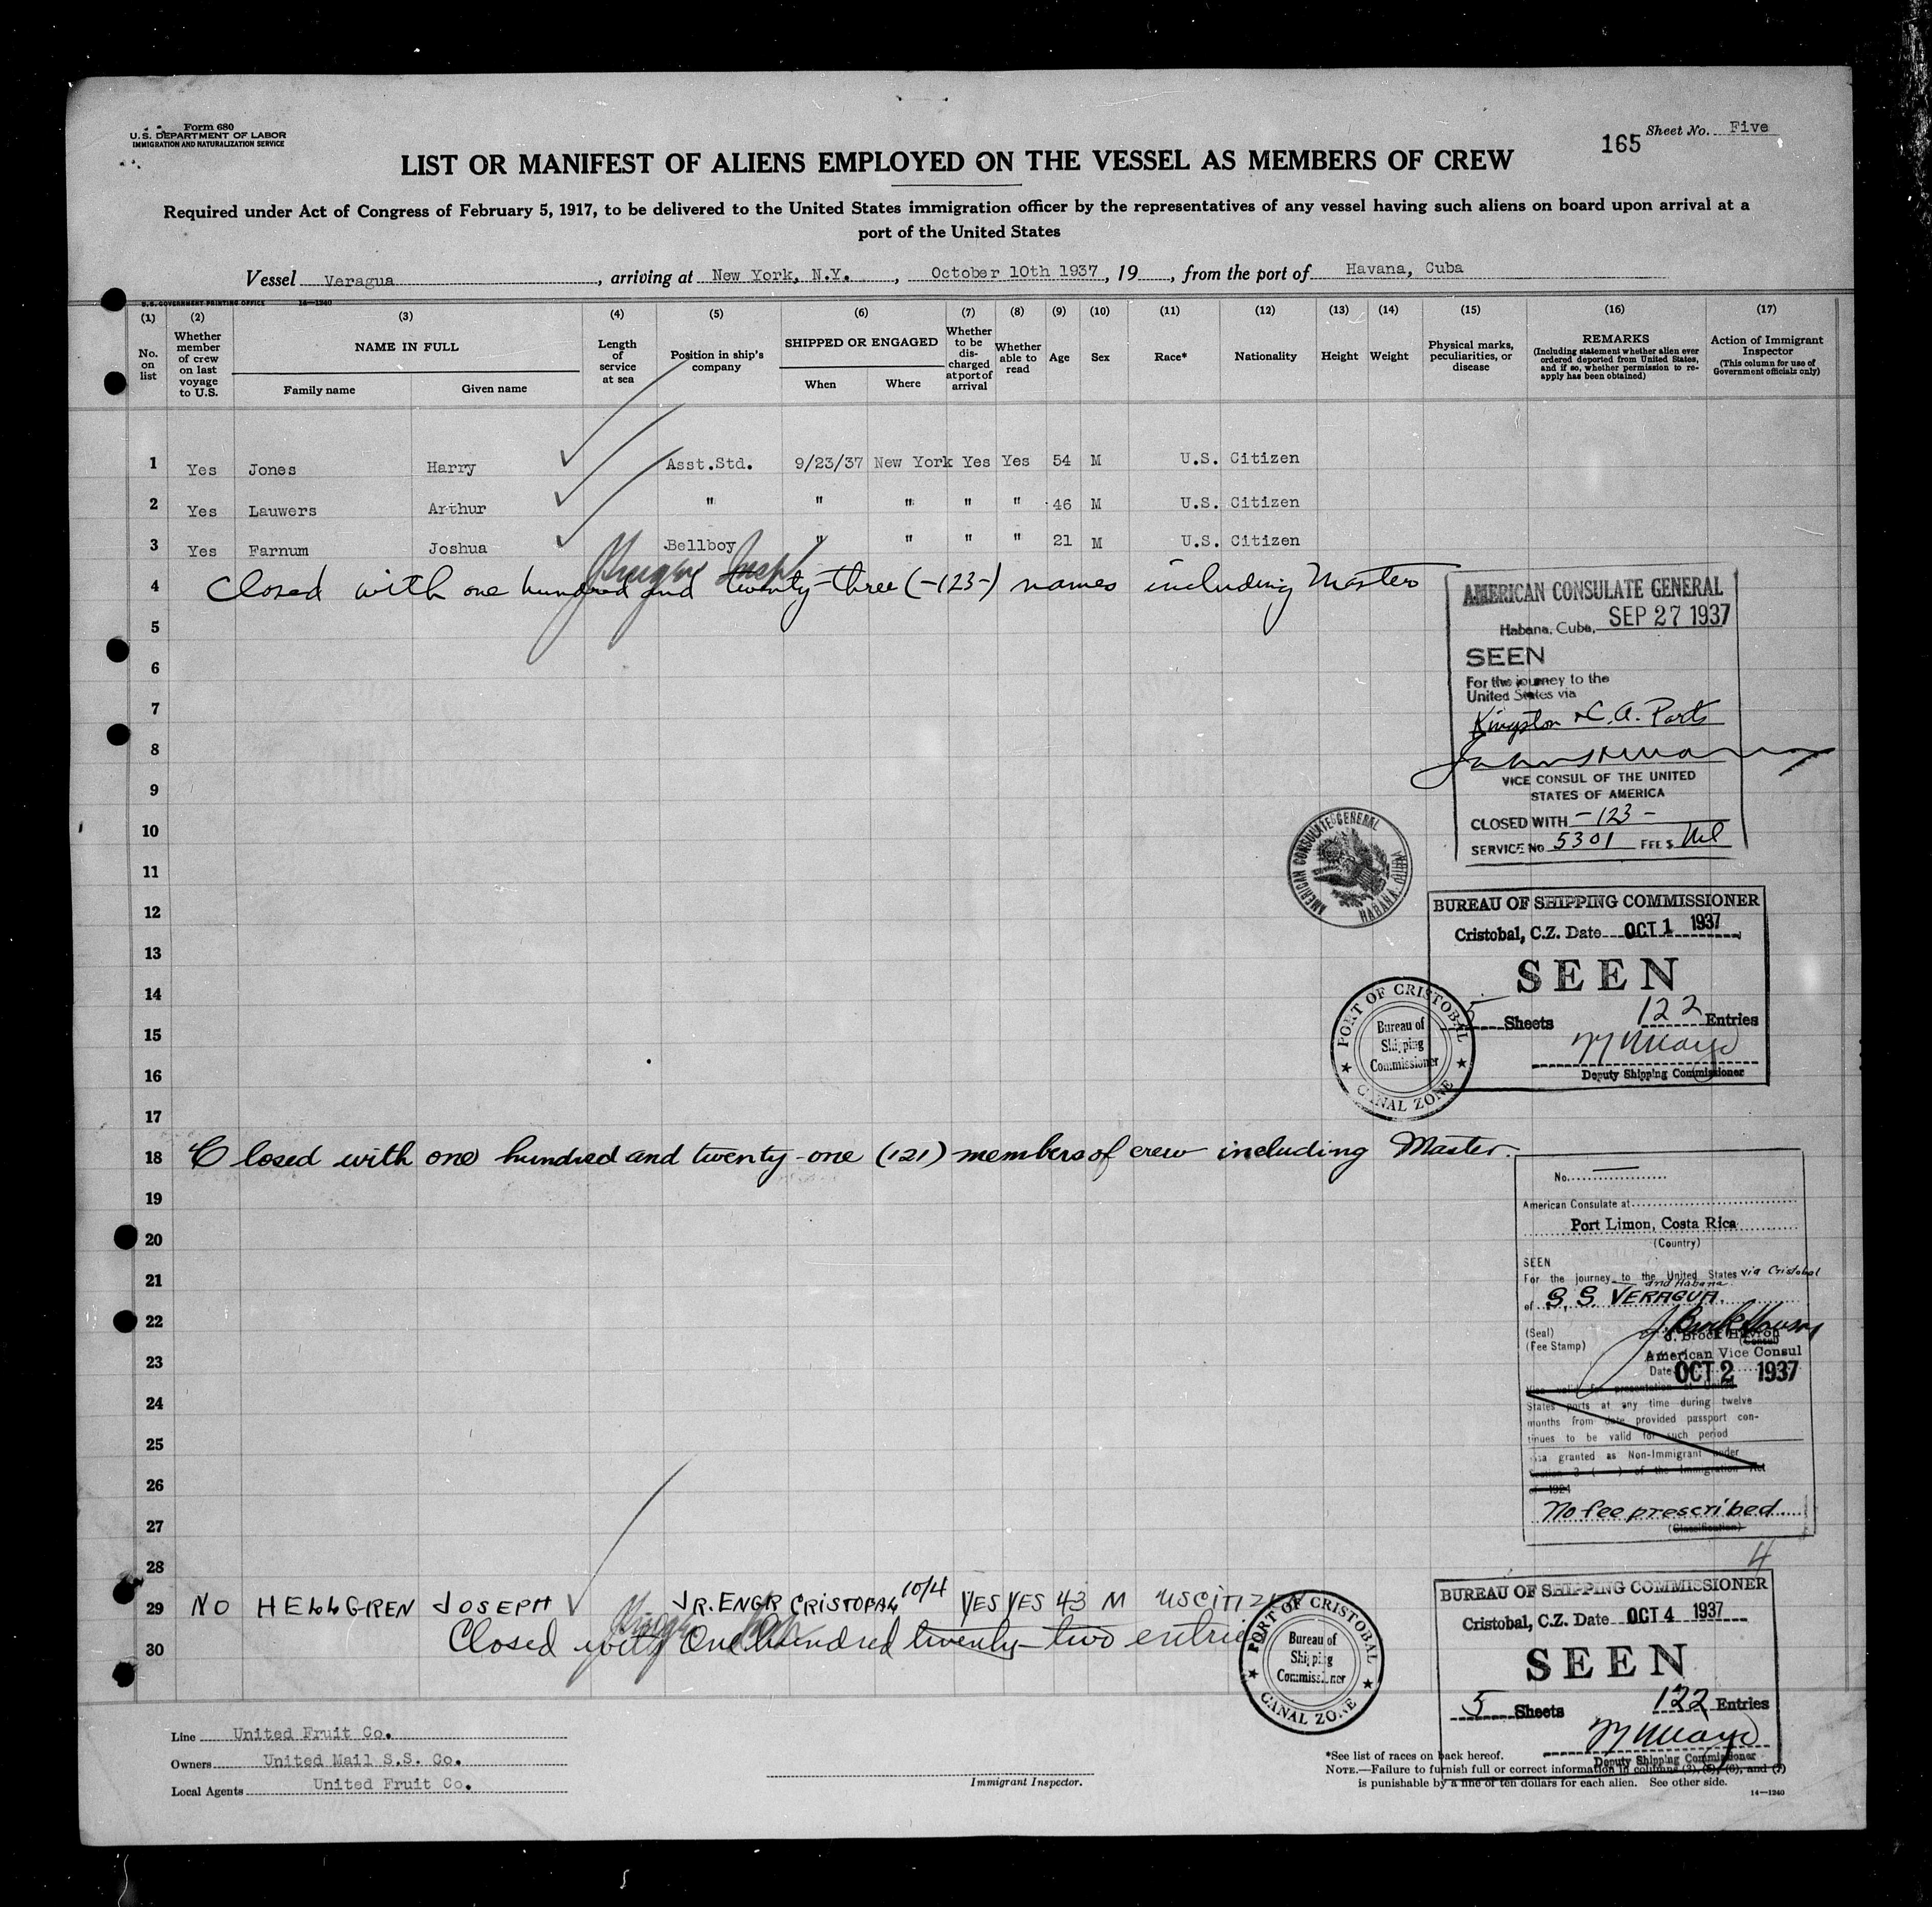 Form 680
U. S. DEPARTMENT OF LABOR
IMMIGRATION AND NATURALIZATION SERVICE
165 Sheet No. Five
LIST OR MANIFEST OF ALIENS EMPLOYED ON THE VESSEL AS MEMBERS OF CREW
Required under Act of Congress of February 5, 1917, to be delivered to the United States immigration officer by the representatives of any vessel having such aliens on board upon arrival at a
port of the United States
Vessel Veragua, arriving at New York, N.Y., October 10th 1937, 19, from the port of Havana, Cuba
U.S. GOVERNMENT PRINTING OFFICE 14—1240
(1) (2) (3) (4) (5) (6) (7) (8) (9) (10) (11) (12) (13) (14) (15) (16) (17)
No. on list
Whether member of crew on last voyage to U.S.
NAME IN FULL
Family name Given name
Length of service at sea
Position in ship's company
SHIPPED OR ENGAGED
When Where
Whether to be discharged at port of arrival
Whether able to read
Age
Sex
Race*
Nationality
Height
Weight
Physical marks, peculiarities, or disease
REMARKS
(Including statement whether alien ever ordered deported from United States, and if so, whether permission to reapply has been obtained)
Action of Immigrant Inspector
(This column for use of Government officials only)
1 Yes Jones Harry Asst.Std. 9/23/37 New York Yes Yes 54 M U.S. Citizen
2 Yes Lauwers Arthur " " " " " 46 M U.S. Citizen
3 Yes Farnum Joshua Bellboy " " " " 21 M U.S. Citizen
4 Closed with one hundred and twenty-three (-123-) names including Master
5
6
7
8
9
10
11
12
13
14
15
16
17
18 Closed with one hundred and twenty-one (121) members of crew including Master.
19
20
21
22
23
24
25
26
27
28
29 NO HELLGREN JOSEPH JR. ENGR CRISTOBAL 10/4 YES YES 43 M US CITIZEN
30 Closed with One hundred twenty-two entries
AMERICAN CONSULATE GENERAL
Habana, Cuba, SEP 27 1937
SEEN
For the journey to the
United States via
Kingston & C.A. Ports
VICE CONSUL OF THE UNITED
STATES OF AMERICA
CLOSED WITH -123-
SERVICE NO 5301 FEE $ Nil
AMERICAN CONSULATE GENERAL
HABANA
BUREAU OF SHIPPING COMMISSIONER
Cristobal, C.Z. Date OCT 1 1937
SEEN
5 Sheets 122 Entries
Deputy Shipping Commissioner
PORT OF CRISTOBAL
Bureau of
Shipping
Commissioner
CANAL ZONE
No.
American Consulate at
Port Limon, Costa Rica
(Country)
SEEN
For the journey to the United States via Cristobal
and Habana
of S. S. VERAGUA.
(Seal)
(Fee Stamp)
(Consul)
American Vice Consul
Date OCT 2 1937
Visa valid for presentation at United
States ports at any time during twelve
months from date provided passport con-
tinues to be valid for such period
Visa granted as Non-Immigrant under
Section 3 ( ) of the Immigration Act
of 1924
No fee prescribed
(Classification)
4
BUREAU OF SHIPPING COMMISSIONER
Cristobal, C.Z. Date OCT 4 1937
SEEN
5 Sheets 122 Entries
Deputy Shipping Commissioner
PORT OF CRISTOBAL
Bureau of
Shipping
Commissioner
CANAL ZONE
Line United Fruit Co.
Owners United Mail S.S. Co.
Local Agents United Fruit Co.
Immigrant Inspector.
*See list of races on back hereof.
NOTE.—Failure to furnish full or correct information in columns (3), (5), (6), and (7)
is punishable by a fine of ten dollars for each alien. See other side.
14—1240